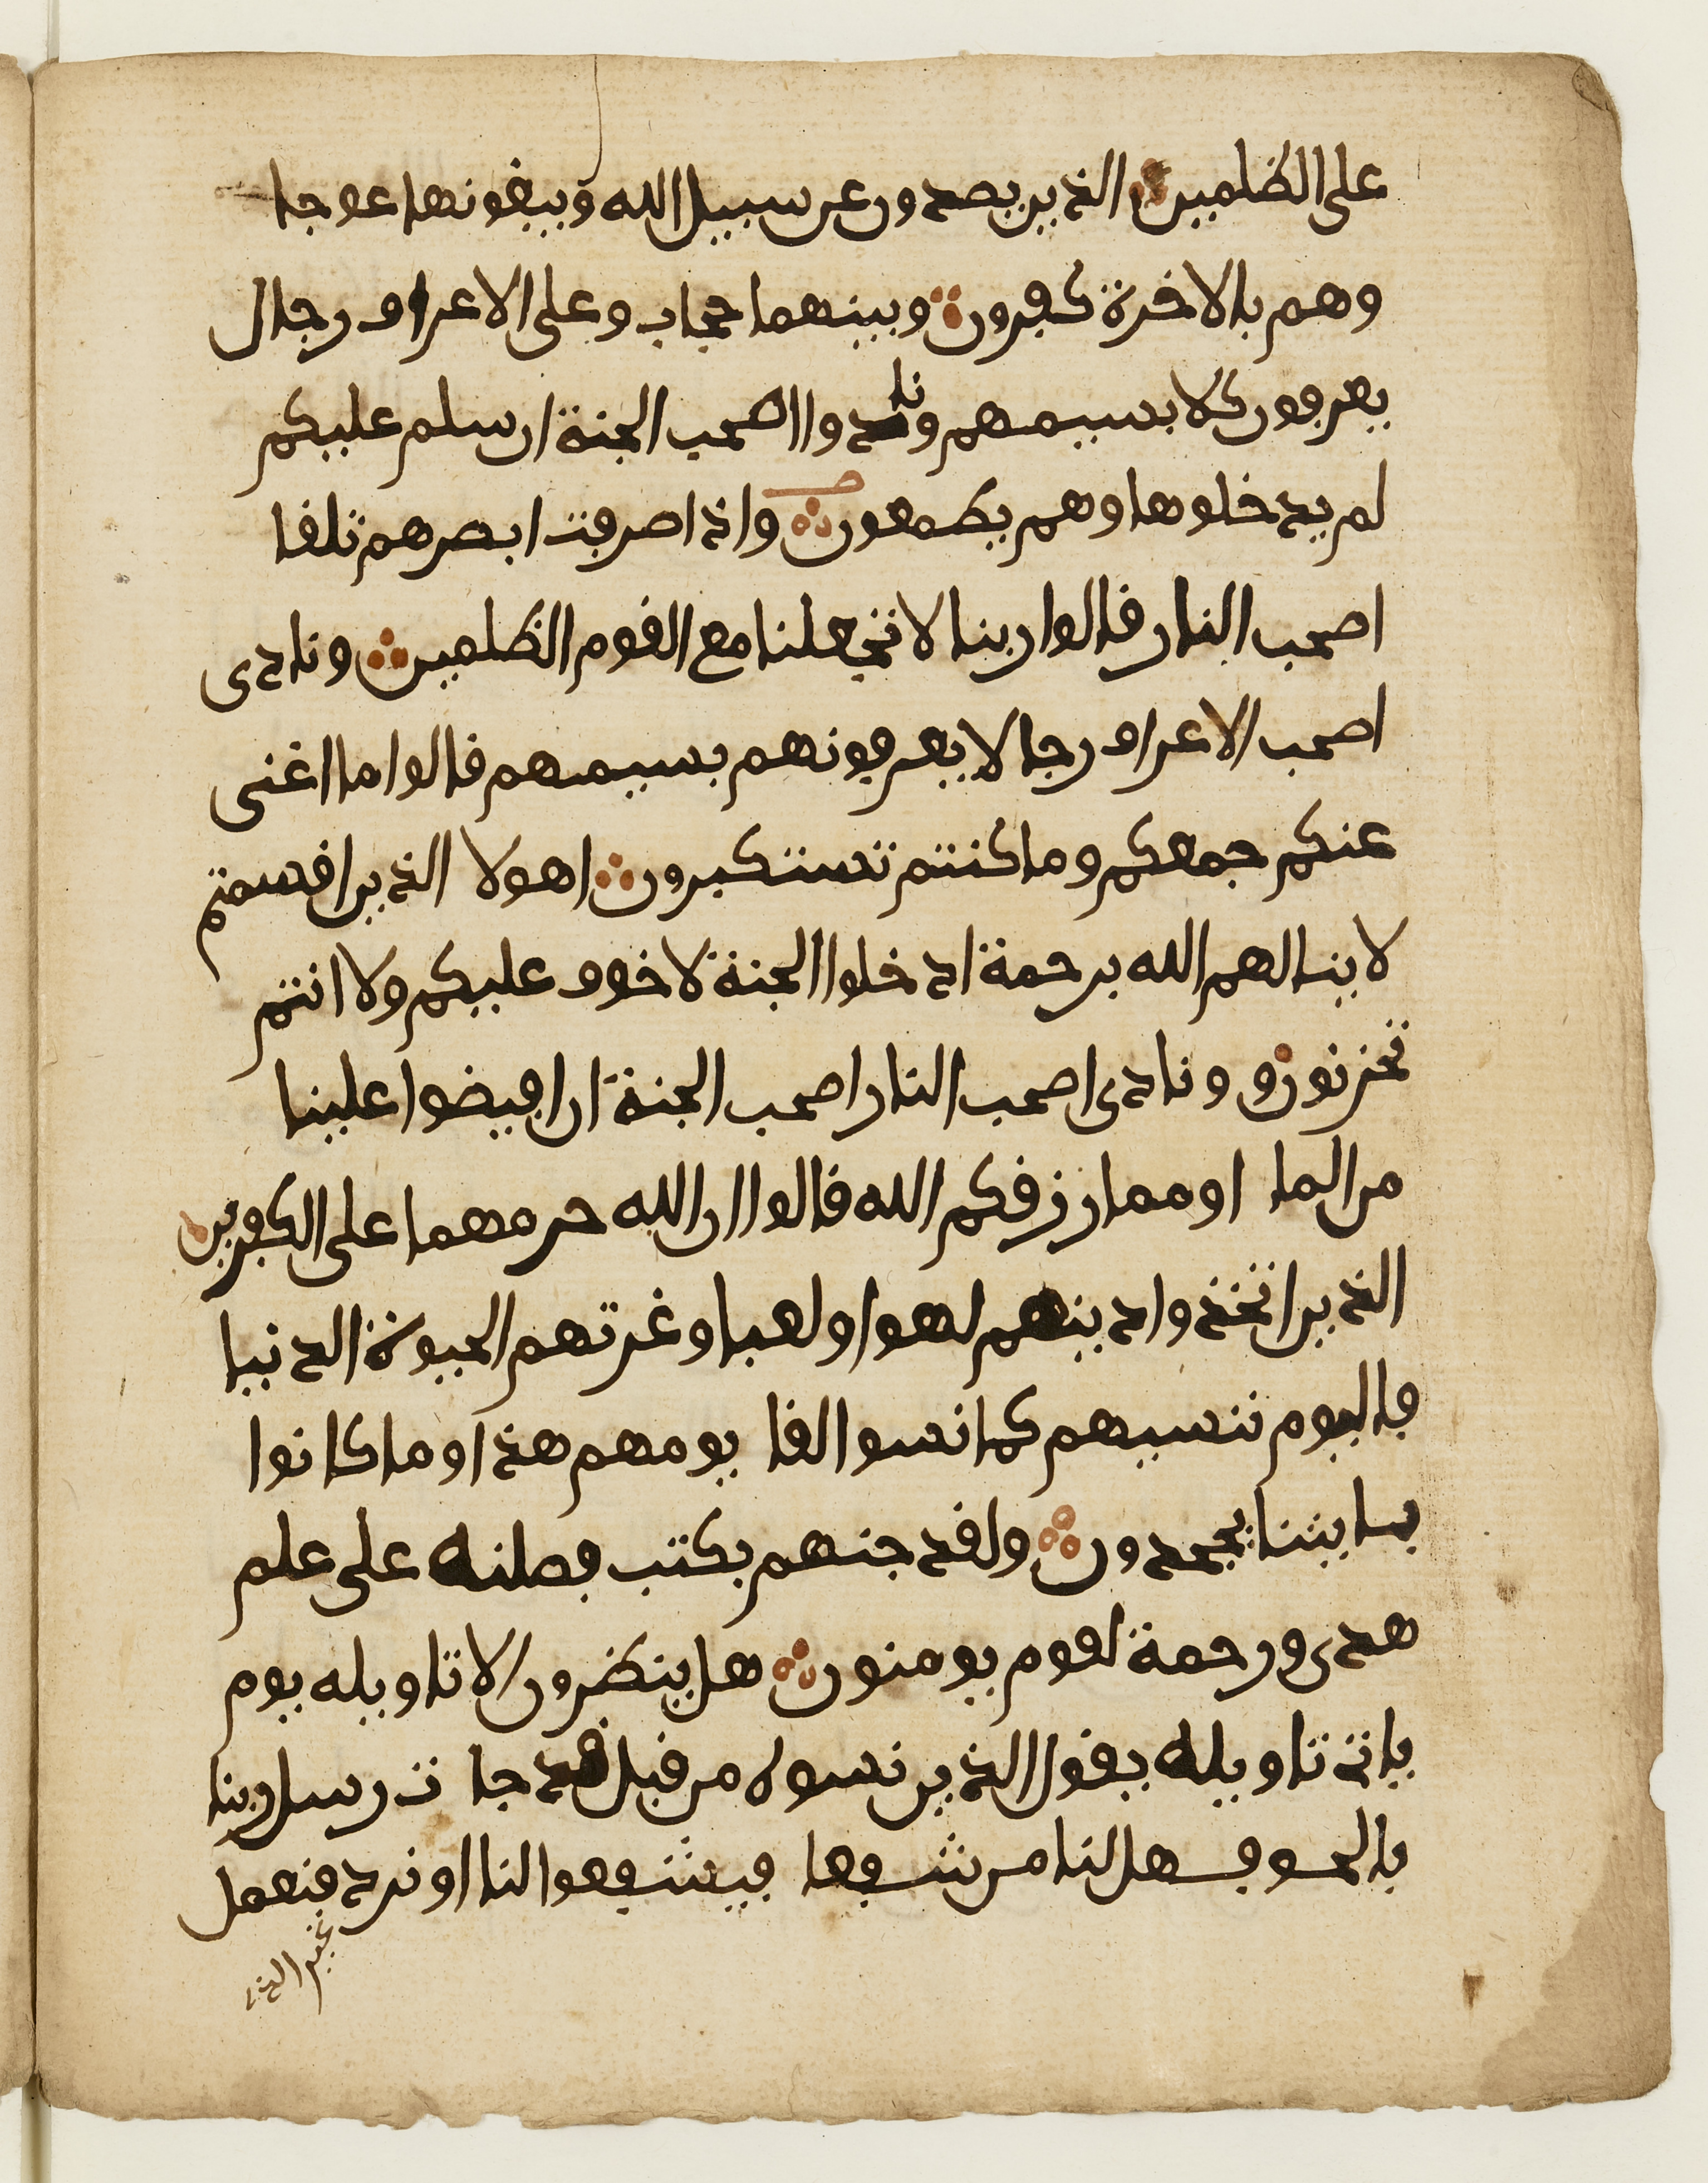 على الظلمين الذين يصدون عن سبيل الله ويبغونها عوجا
وهم بالاخرة كفرون وبينهما حجاب وعلى الاعراف رجال
يعرفون كلا بسيمهم ونادوا اصحب الجنة ان سلم عليكم
لم يدخلوها وهم يطمعون واذا صرفت ابصرهم تلفا
اصحب النار قالوا ربنا لا تجعلنا مع القوم الظلمين ونادى
اصحب الاعراف رجالا يعرفونهم بسيمهم قالوا ما اغنى
عنكم جمعكم وما كنتم تستكبرون اهولا الذين اقسمتم
لا ينالهم الله برحمة ادخلوا الجنة لا خوف عليكم ولا انتم
تحزنون ونادى اصحب النار اصحب الجنة ان افيضوا علينا
من الما او مما رزقكم الله قالوا ان الله حرمهما على الكفرين
الذين اتخذوا دينهم لهوا ولعبا وغرتهم الحيوة الدنيا
فاليوم ننسيهم كما نسوا لقا يومهم هذا وما كانوا
بايتنا يجحدون ولقد جئنهم بكتب فصلنه على علم
هدى ورحمة لقوم يومنون هل ينظرون الا تاويله يوم
ياتي تاويله يقول الذين نسوه من قبل قد جات رسل ربنا
بالحق فهل لنا من شفعا فيشفعوا لنا او نرد فنعمل